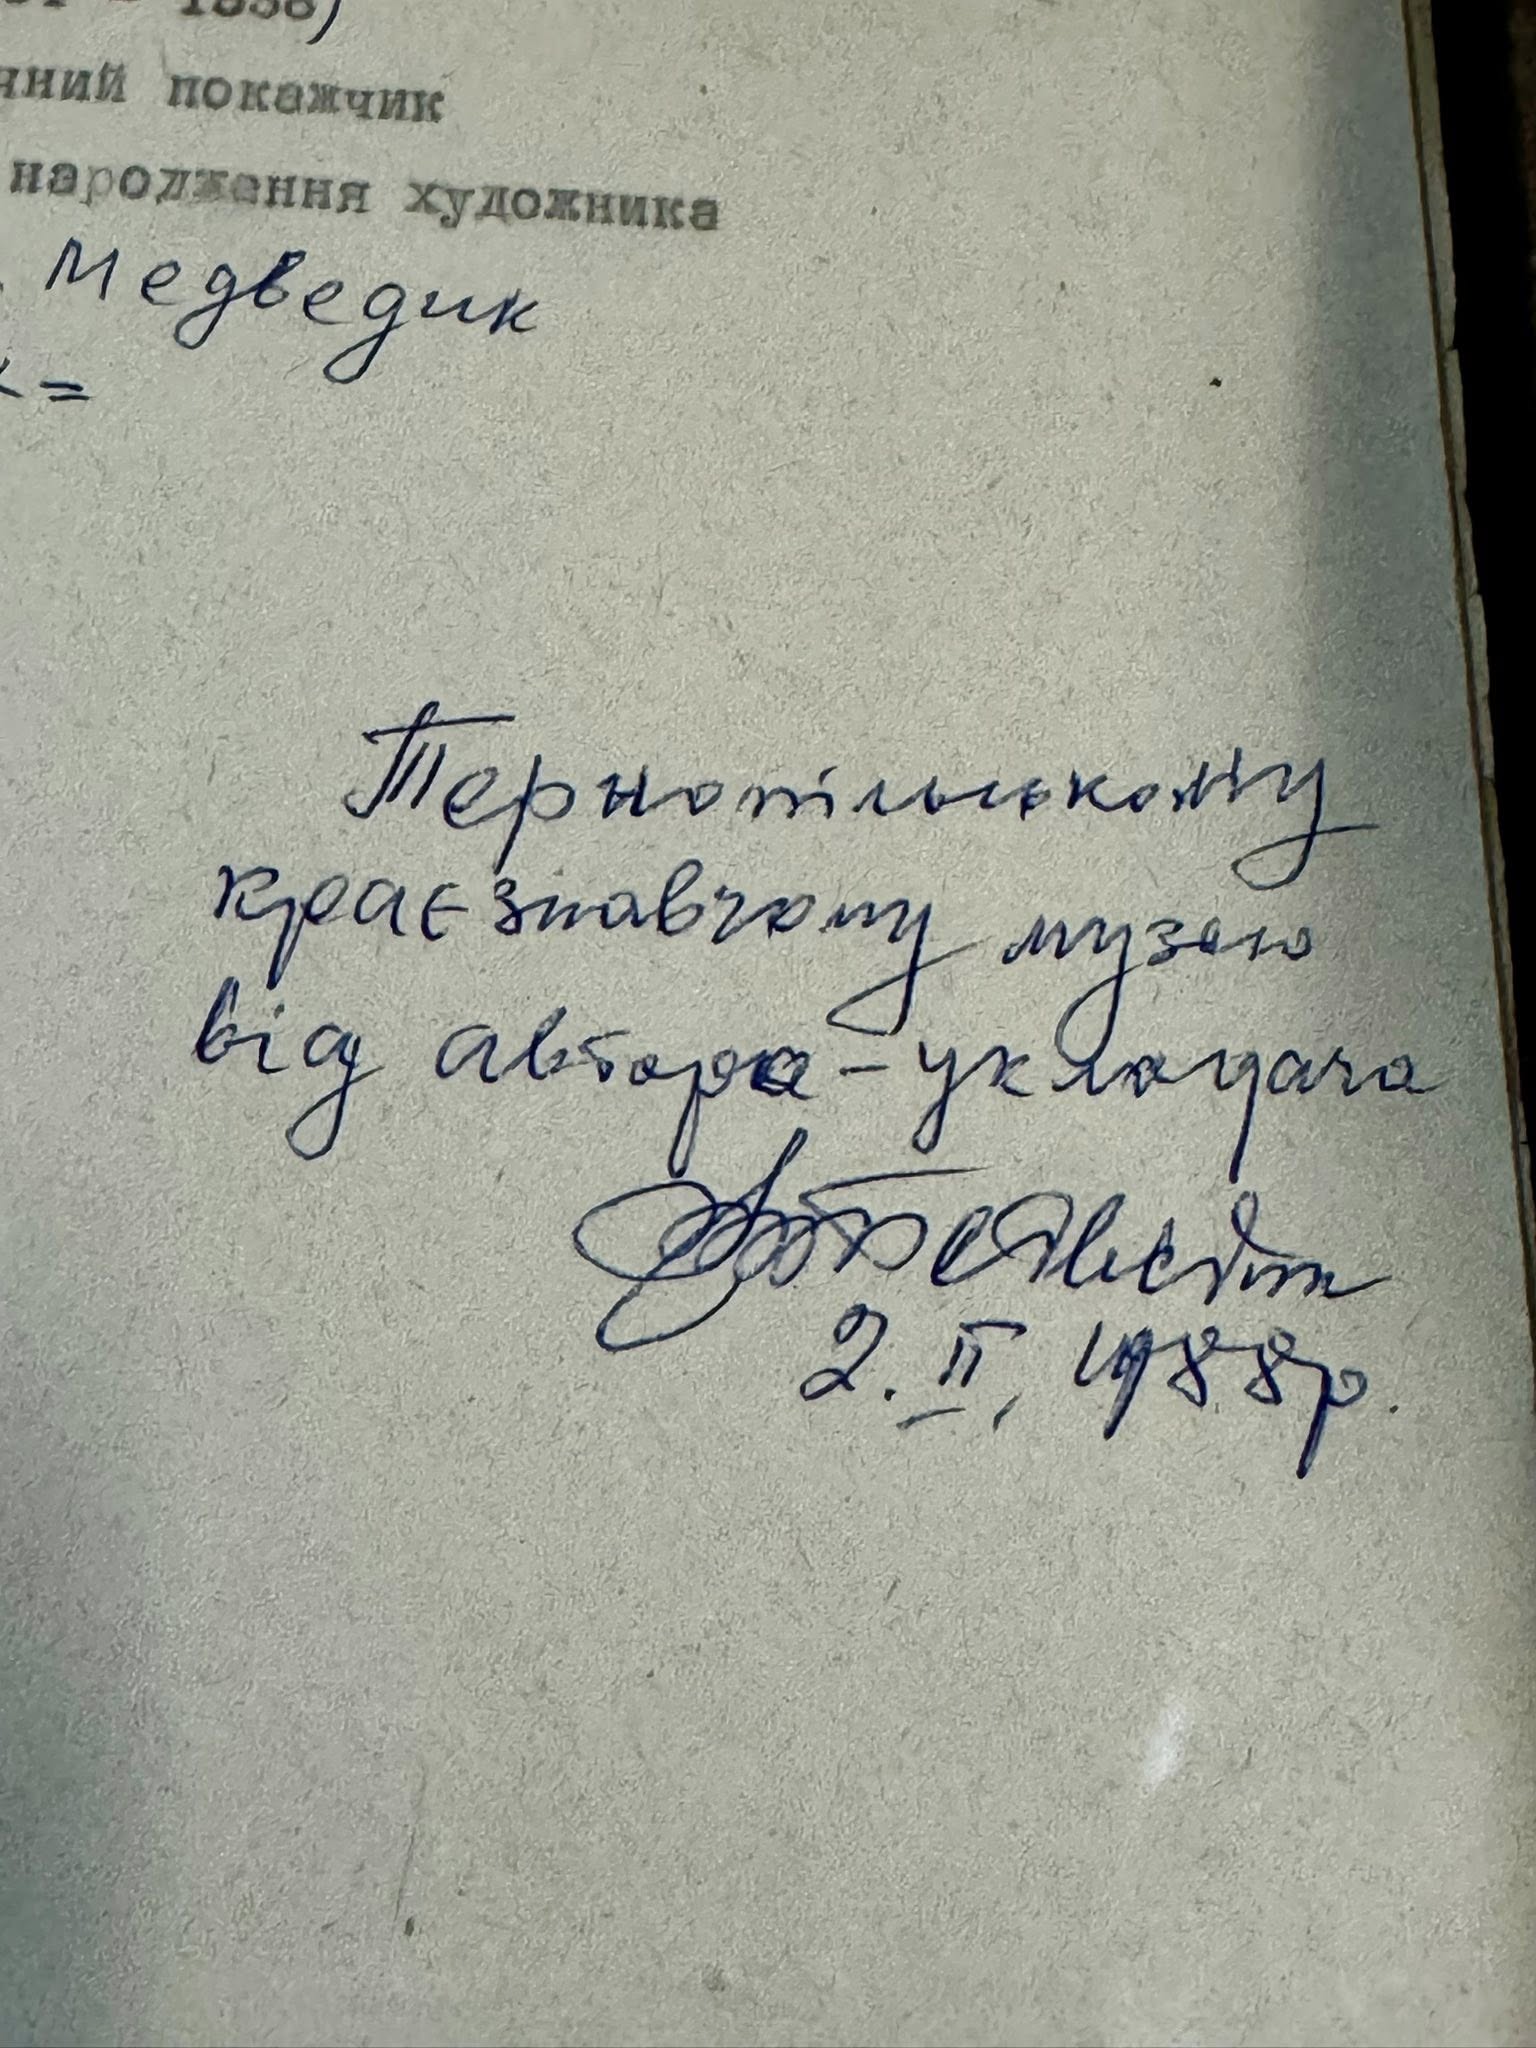 1838)
чний покажчик
народження художника
Медведик
Тернопільському
краєзнавчому музею
від автора-укладача
2. II, 1988р.